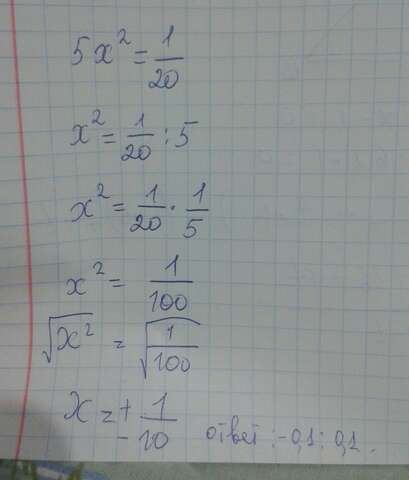 5x² = 1/20
x² = 1/20 : 5
x² = 1/20 · 1/5
x² = 1/100
√x² = √1/100
x = ± 1/10 ответ: -0,1; 0,1.